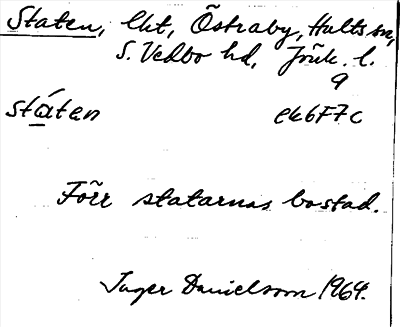 Staten, lht, Östraby, Hults sn,
S. Vedbo hd, Jönk. l.
9
státen ek6F7c
Förr statarnas bostad.
Inger Danielsson 1964.